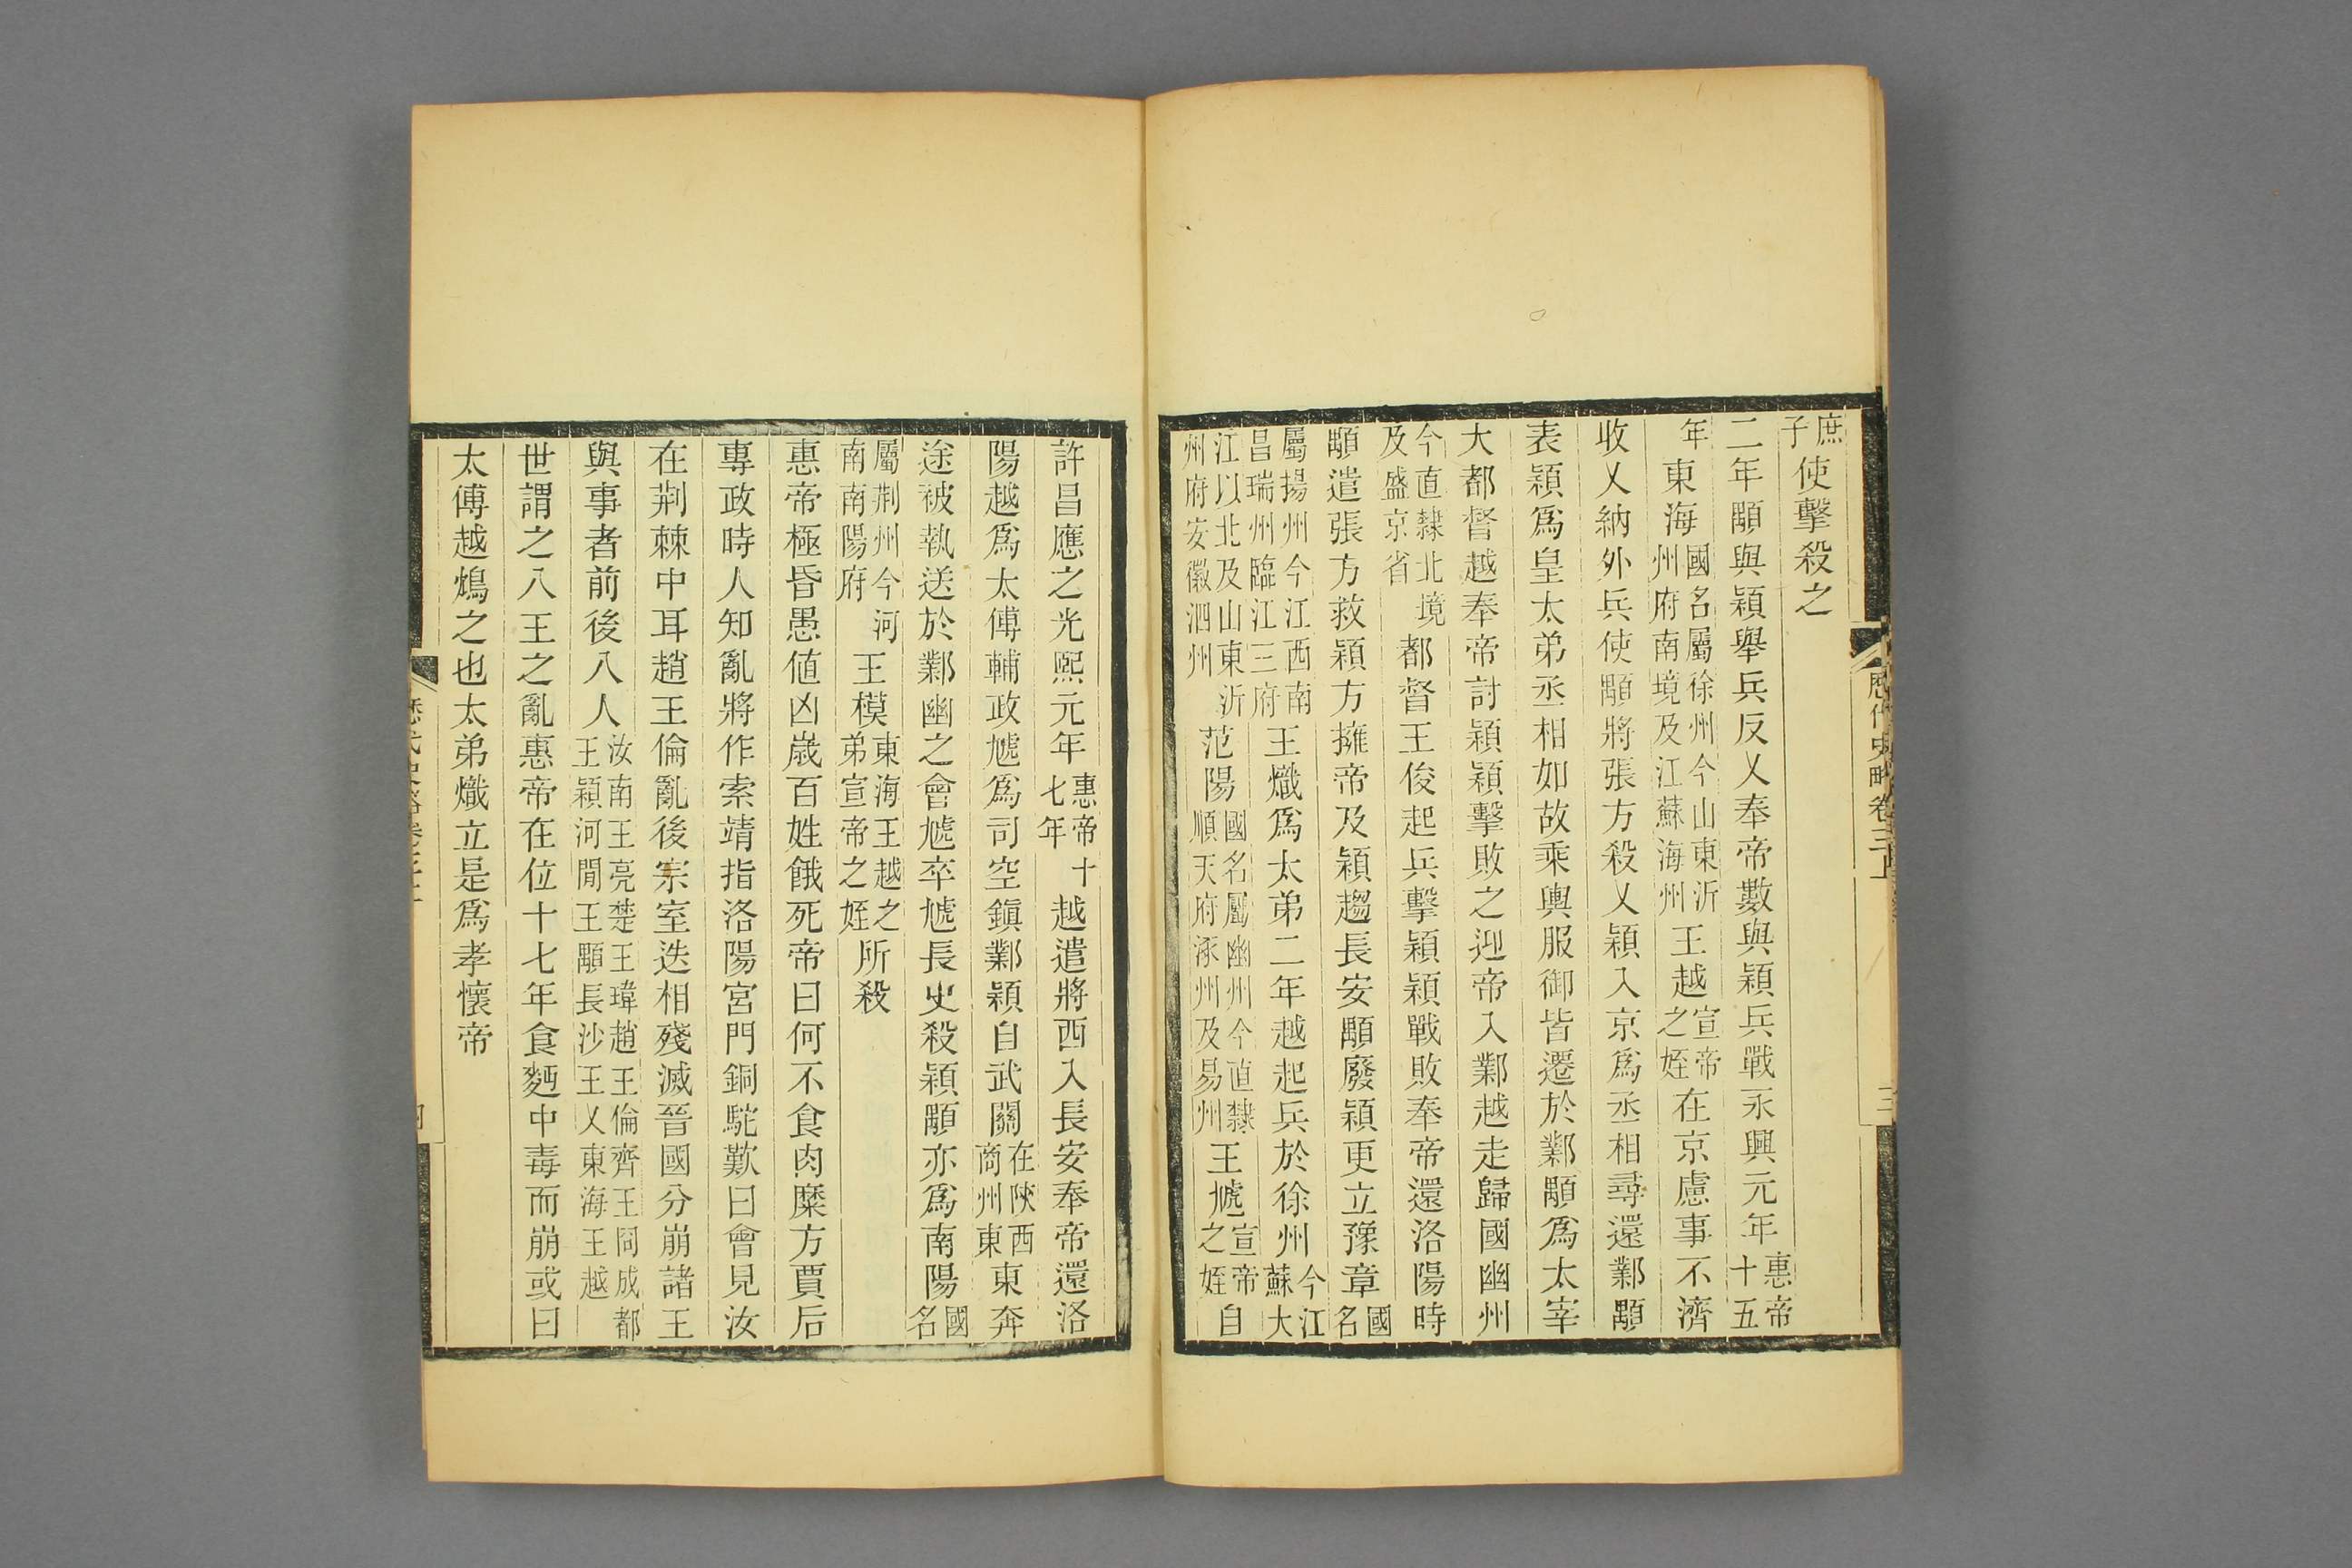 庶子使擊殺之
二年顒與穎舉兵反乂奉帝數與穎兵戰永興元年惠帝十五
年東海國名屬徐州今山東沂州府南境及江蘇海州王越宣帝之姪在京慮事不濟
收乂納外兵使顒將張方殺乂穎入京爲丞相尋還鄴顒
表穎爲皇太弟丞相如故乘輿服御皆遷於鄴顒爲太宰
大都督越奉帝討穎穎擊敗之迎帝入鄴越走歸國幽州
今直隸北境及盛京省都督王俊起兵擊穎穎戰敗奉帝還洛陽時
顒遣張方救穎方擁帝及穎趨長安顒廢穎更立豫章國名
屬揚州今江西南昌瑞州臨江三府王熾爲太弟二年越起兵於徐州今江蘇大
江以北及山東沂州府安徽泗州范陽國名屬幽州今直隸順天府涿州及易州王虓宣帝之姪自
許昌應之光熙元年惠帝十七年越遣將西入長安奉帝還洛
陽越爲太傅輔政虓爲司空鎮鄴穎自武關在陝西商州東東奔
途被執送於鄴幽之會虓卒虓長史殺穎顒亦爲南陽國名
屬荆州今河南南陽府王模東海王越之弟宣帝之姪所殺
惠帝極昏愚値凶歲百姓餓死帝曰何不食肉糜方賈后
專政時人知亂將作索靖指洛陽宮門銅駝歎曰會見汝
在荆棘中耳趙王倫亂後宗室迭相殘滅晉國分崩諸王
與事者前後八人汝南王亮楚王瑋趙王倫齊王冏成都王穎河閒王顒長沙王乂東海王越
世謂之八王之亂惠帝在位十七年食麪中毒而崩或曰
太傅越鴆之也太弟熾立是爲孝懷帝